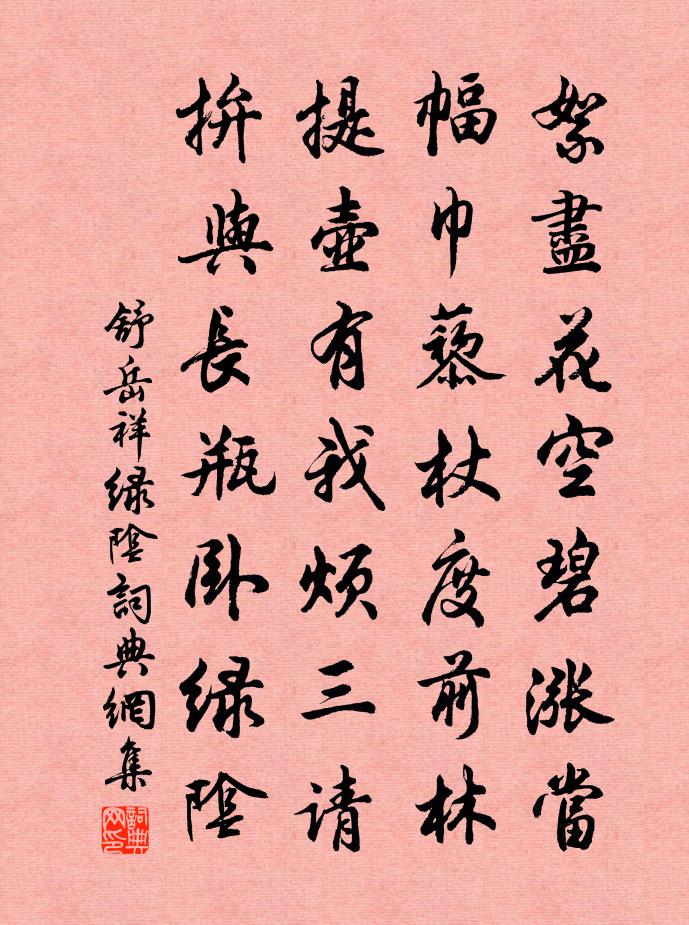 絮盡花空碧漲當
幅巾藜杖度前林
提壺有我煩三请
拚與長瓶卧緑陰
舒岳祥緑陰詞典網集
詞典网印